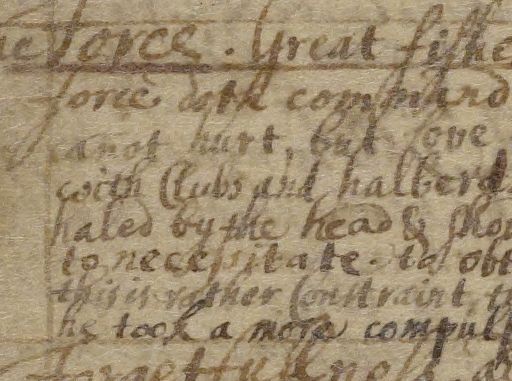 force. Great fishe
force doth command
cannot hurt, but love
with Clubs and halberd
haled by the head & shou
to necessitate. to obt
this is rather Constraint, t
he took a more compuls
forgetfulness